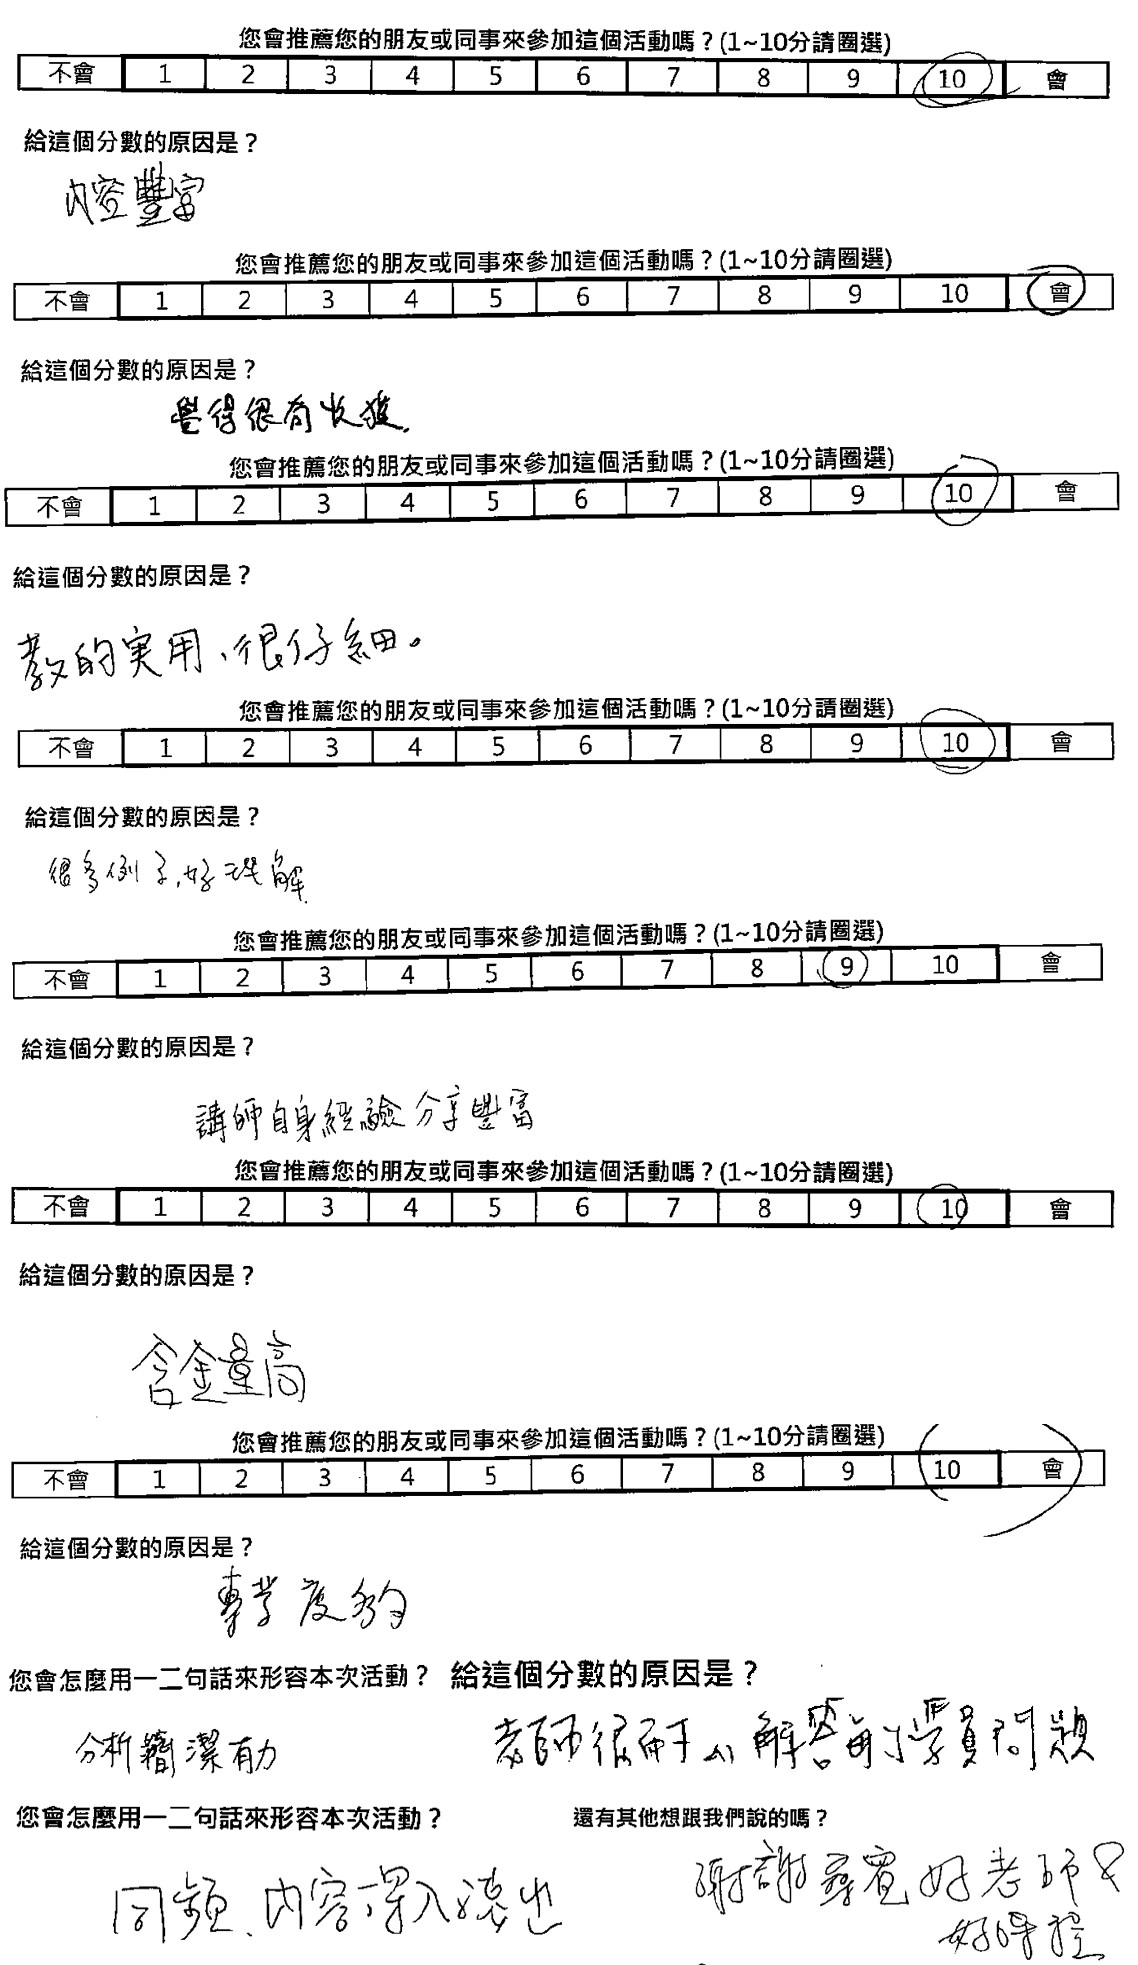 您會推薦您的朋友或同事來參加這個活動嗎？(1~10分請圈選)
不會 1 2 3 4 5 6 7 8 9 10 會
給這個分數的原因是？
內容豐富
您會推薦您的朋友或同事來參加這個活動嗎？(1~10分請圈選)
不會 1 2 3 4 5 6 7 8 9 10 會
給這個分數的原因是？
覺得很有收獲.
您會推薦您的朋友或同事來參加這個活動嗎？(1~10分請圈選)
不會 1 2 3 4 5 6 7 8 9 10 會
給這個分數的原因是？
教的実用、很仔細。
您會推薦您的朋友或同事來參加這個活動嗎？(1~10分請圈選)
不會 1 2 3 4 5 6 7 8 9 10 會
給這個分數的原因是？
很多例子,好理解
您會推薦您的朋友或同事來參加這個活動嗎？(1~10分請圈選)
不會 1 2 3 4 5 6 7 8 9 10 會
給這個分數的原因是？
講師自身經驗分享豐富
您會推薦您的朋友或同事來參加這個活動嗎？(1~10分請圈選)
不會 1 2 3 4 5 6 7 8 9 10 會
給這個分數的原因是？
含金量高
您會推薦您的朋友或同事來參加這個活動嗎？(1~10分請圈選)
不會 1 2 3 4 5 6 7 8 9 10 會
給這個分數的原因是？
專業度夠
您會怎麼用一二句話來形容本次活動？ 給這個分數的原因是？
分析簡潔有力 老師很耐心解答每位學員問題
您會怎麼用一二句話來形容本次活動？ 還有其他想跟我們說的嗎？
同頻、內容深入淺出 謝謝 好老師&
好課程